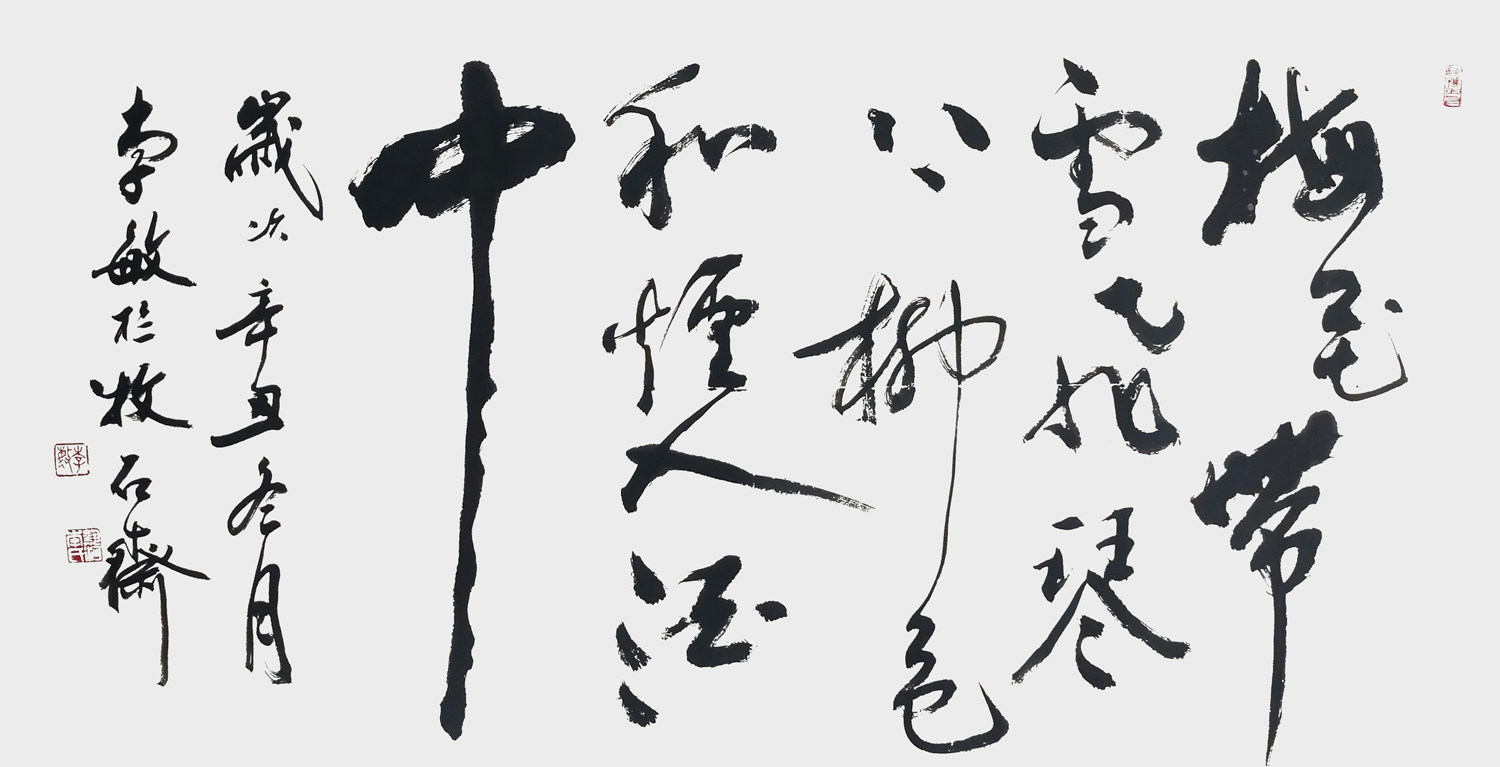 梅花帶
雪飛琴
上柳色
和煙入酒
中
歲次辛丑冬月
李敏於牧石齋
李敏